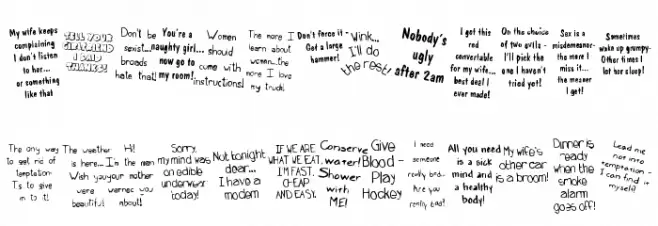 My wife keeps
complaining
I don't listen
to her...
or something
like that
TELL YOUR
GIRLFRIEND
I SAID
THANKS!
Don't be
sexist...
broads
hate that!
You're a
naughty girl...
now go to
my room!
Women
should
come with
instructions!
The more I
learn about
women...the
more I love
my truck!
Don't force it -
Get a large
hammer!
Wink...
I'll do
the rest!
Nobody's
ugly
after 2am
I got this
red
convertable
for my wife...
best deal I
ever made!
On the choice
of two evils -
I'll pick the
one I haven't
tried yet!
Sex is a
misdemeanor-
the more I
miss it...
the meaner
I get!
Sometimes
wake up grumpy-
Other times I
let her sleep!
The only way
to get rid of
temptation
Is to give
in to it!
The weather
is here...
Wish you
were
beautiful
Hi!
I'm the man
your mother
warned you
about!
Sorry,
my mind was
on edible
underwear
today!
Not tonight
dear...
I have a
modem
IF WE ARE
WHAT WE EAT,
I'M FAST,
CHEAP
AND EASY.
Conserve
water!
Shower
with
ME!
Give
Blood -
Play
Hockey
I need
someone
really bad...
Are you
really bad?
All you need
is a sick
mind and
a healthy
body!
My wife's
other car
is a broom!
Dinner is
ready
when the
smoke
alarm
goes off!
Lead me
not into
temptation -
I can find it
myself!